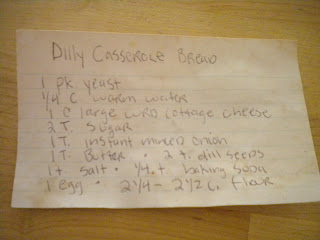 Dilly Casserole Bread
1 pk. yeast
1/4 C warm water
1 C large curd cottage cheese
2 T. sugar
1 T. instant minced onion
1 T. Butter • 2 t. dill seeds
1 t. salt • 1/4 t. baking soda
1 egg • 2 1/4 - 2 1/2 C. flour